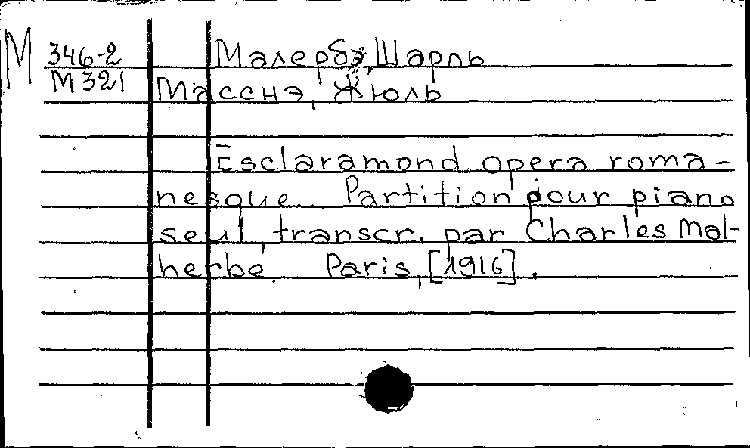 М 346-2 Малербэ, Шарль
М 321 Масснэ, Жюль
Esclaramond opera roma-
nesque. Partition pour piano
seul, transcr. par Charles Mal-
herbe. Paris, [1916].